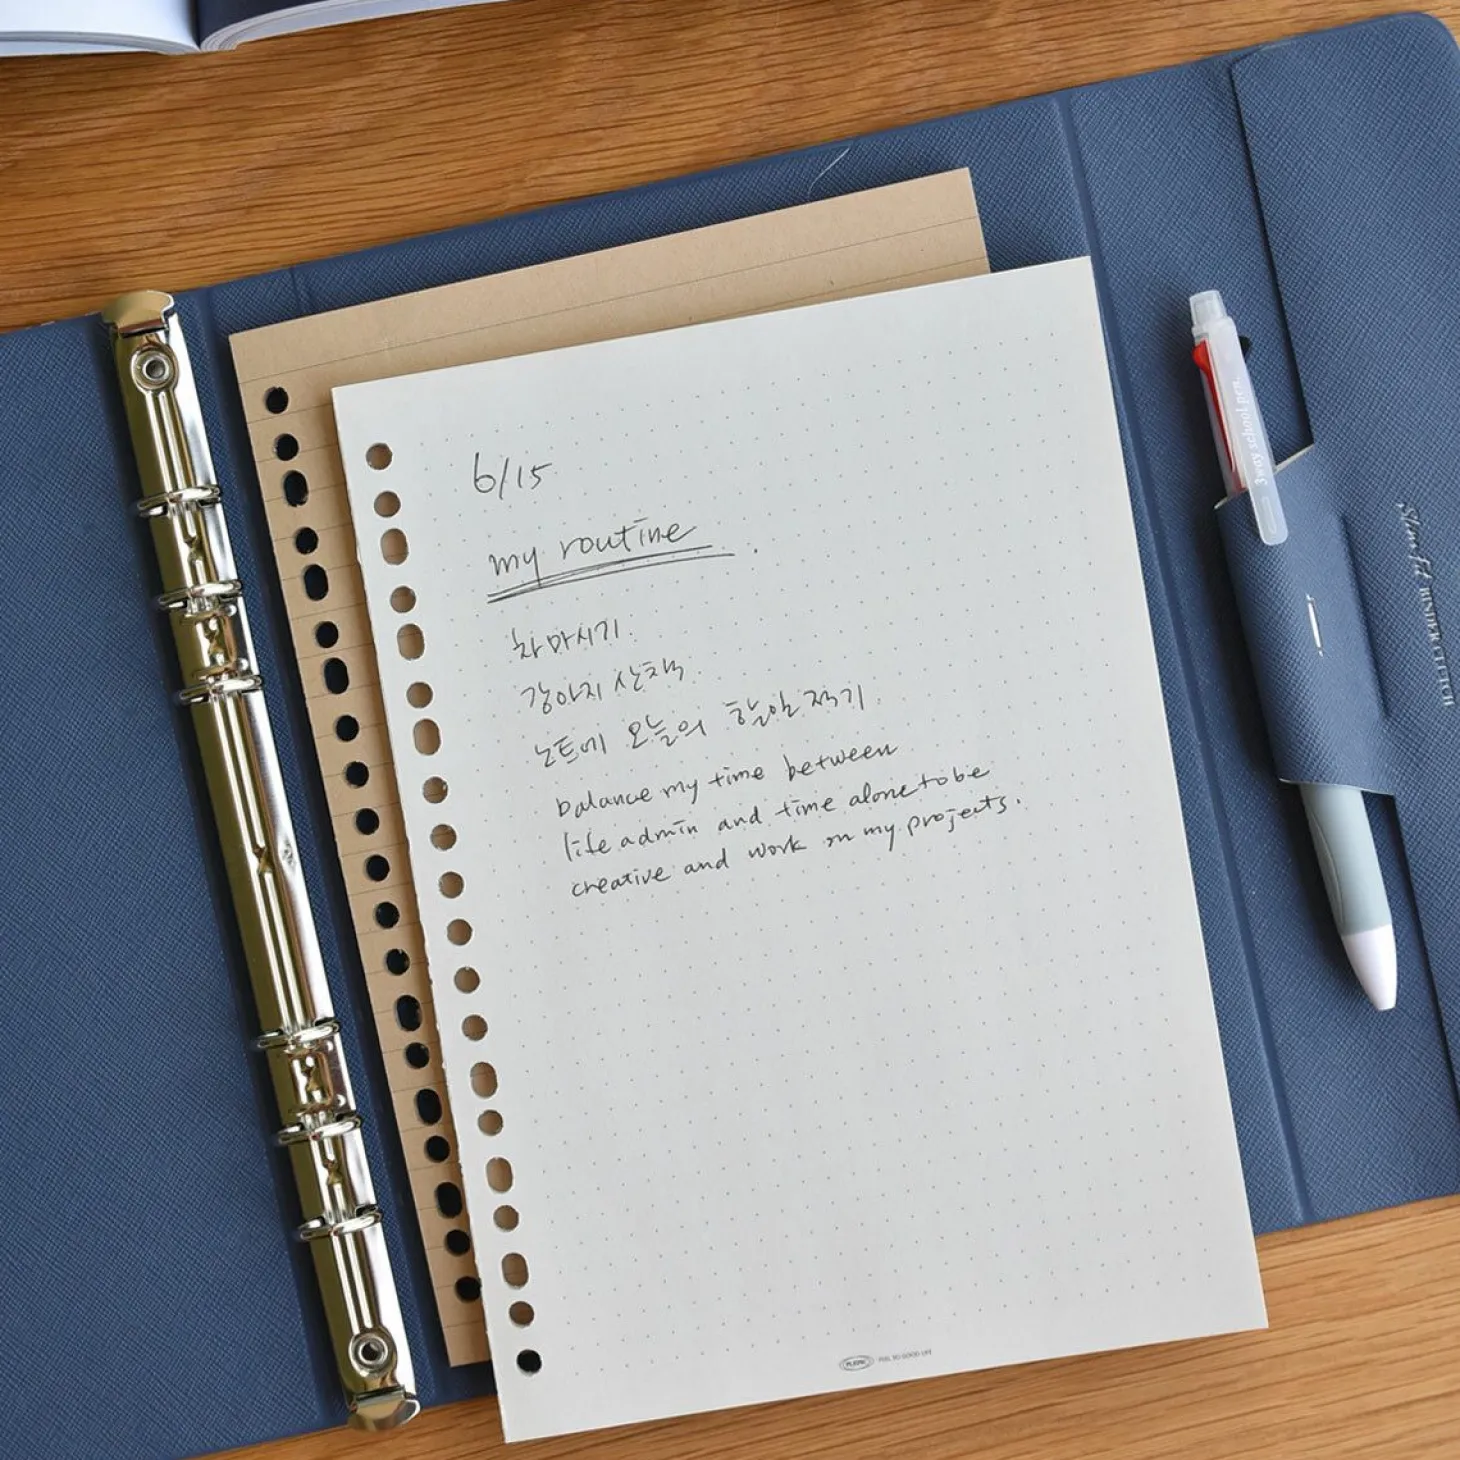 6/15
my routine.
차 마시기.
강아지 산책.
노트에 오늘의 할일 적기.
balance my time between
life admin and time alone to be
creative and work on my projects.
3way school pen.
FEEL SO GOOD LIFE